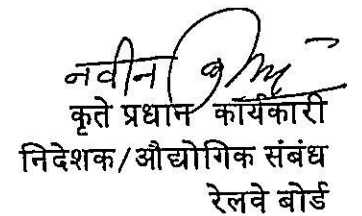 नवीन कुमार
कृते प्रधान कार्यकारी
निदेशक/औद्योगिक संबंध
रेलवे बोर्ड